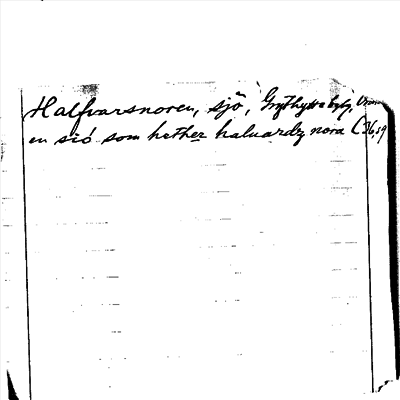 Halfvarsnoren, sjö, Grythytte bg,
en siö som hether haluardz nora